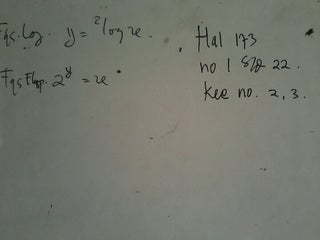 Fgs.Log. y = ²log x.
Fgs Exp. 2^y = x
Hal 173
no 1 s/d 22.
Kec no. 2, 3.